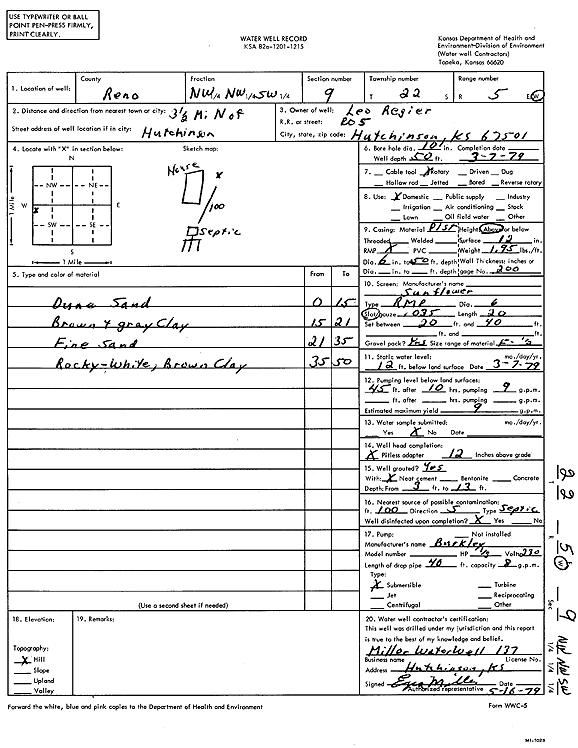 USE TYPEWRITER OR BALL
POINT PEN-PRESS FIRMLY,
PRINT CLEARLY.
WATER WELL RECORD
KSA 82a-1201-1215
Kansas Department of Health and
Environment-Division of Environment
(Water well Contractors)
Topeka, Kansas 66620
1. Location of well: County Reno Fraction NW 1/4 NW 1/4 SW 1/4 Section number 9 Township number T 22 S Range number R 5 E/W
2. Distance and direction from nearest town or city: 3 1/2 Mi N of
Street address of well location if in city: Hutchinson
3. Owner of well: Leo Regier
R.R. or street: R05
City, state, zip code: Hutchinson, KS 67501
4. Locate with "X" in section below: Sketch map:
N
NW NE
W X E
SW SE
S
1 Mile
1 Mile
House
x
100
Septic
5. Type and color of material From To
Dune Sand 0 15
Brown & gray Clay 15 21
Fine Sand 21 35
Rocky-White, Brown Clay 35 50
(Use a second sheet if needed)
6. Bore hole dia. 10 in. Completion date
Well depth 50 ft. 3-7-79
7. Cable tool X Rotary Driven Dug
Hollow rod Jetted Bored Reverse rotary
8. Use: X Domestic Public supply Industry
Irrigation Air conditioning Stock
Lawn Oil field water Other
9. Casing: Material Plst Height: Above or below
Threaded Welded Surface 12 in.
RMP X PVC Weight 1.95 lbs./ft.
Dia. 6 in. to 50 ft. depth Wall Thickness: inches or
Dia. in. to ft. depth gage No. .200
10. Screen: Manufacturer's name
Sunflower
Type RMP Dia. 6
Slot/gauze .035 Length 20
Set between 20 ft. and 40 ft.
ft. and ft.
Gravel pack? Yes Size range of material
11. Static water level: mo./day/yr.
12 ft. below land surface Date 3-7-79
12. Pumping level below land surfaces:
45 ft. after 10 hrs. pumping 9 g.p.m.
ft. after hrs. pumping g.p.m.
Estimated maximum yield 9 g.p.m.
13. Water sample submitted: mo./day/yr.
Yes X No Date
14. Well head completion:
X Pitless adapter 12 Inches above grade
15. Well grouted? Yes
With: X Neat cement Bentonite Concrete
Depth: From 3 ft. to 13 ft.
16. Nearest source of possible contamination:
ft. 100 Direction S Type Septic
Well disinfected upon completion? X Yes No
17. Pump: Not installed
Manufacturer's name Burkley
Model number HP 1/3 Volts 230
Length of drop pipe 40 ft. capacity 8 g.p.m.
Type:
X Submersible Turbine
Jet Reciprocating
Centrifugal Other
18. Elevation:
Topography:
X Hill
Slope
Upland
Valley
19. Remarks:
20. Water well contractor's certification:
This well was drilled under my jurisdiction and this report
is true to the best of my knowledge and belief.
Miller Waterwell 137
Business name License No.
Address Hutchinson, KS
Signed Date 5-16-79
Authorized representative
Forward the white, blue and pink copies to the Department of Health and Environment
Form WWC-5
T 22 R 5 W Sec 9 NW 1/4 NW 1/4 SW 1/4